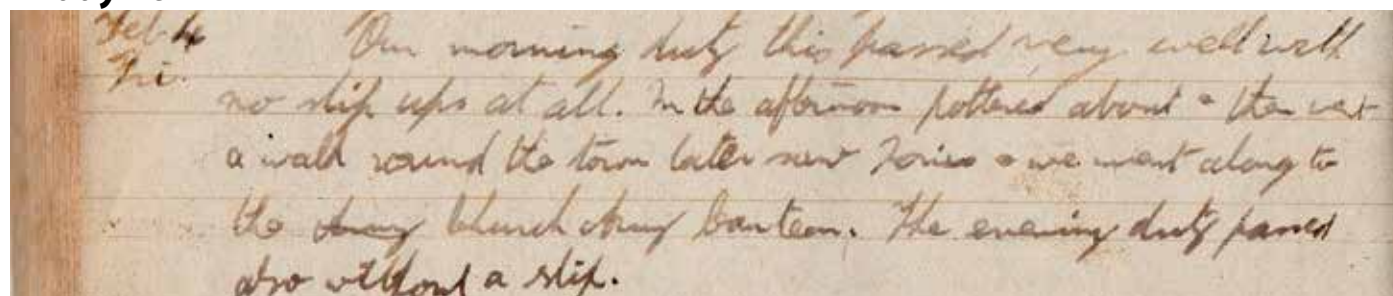 Feb 4 Our morning duty this passed very well with
Fri. no slip ups at all. In the afternoon pottered about & then went
a walk round the town later saw & we went along to
the Army Church Army Canteen. The evening duty passed
also without a slip.